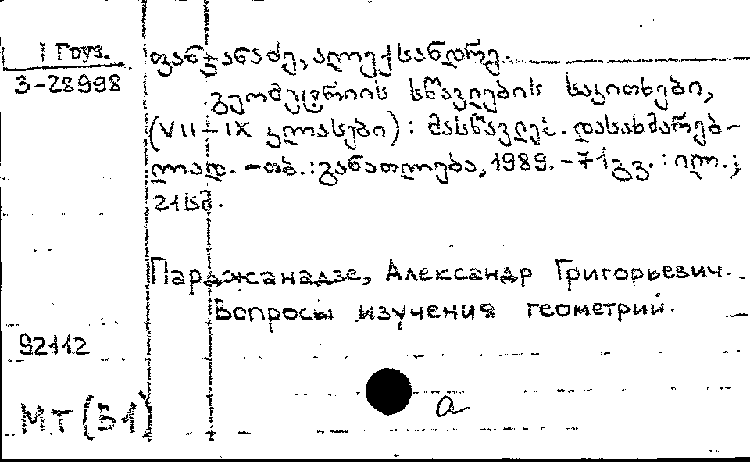 1 Груз.
3-28998
ფარჯანაძე, ალექსანდრე.
გეომეტრიის სწავლების საკითხები,
(VII-IX კლასები): მასწავლებ. დასახმარებ-
ლად. - თბ.: განათლება, 1989. - 71გვ.: ილ.;
21სმ.
Парджанадзе, Александр Григорьевич.
Вопросы изучения геометрии.
92112
МТ (51)
а